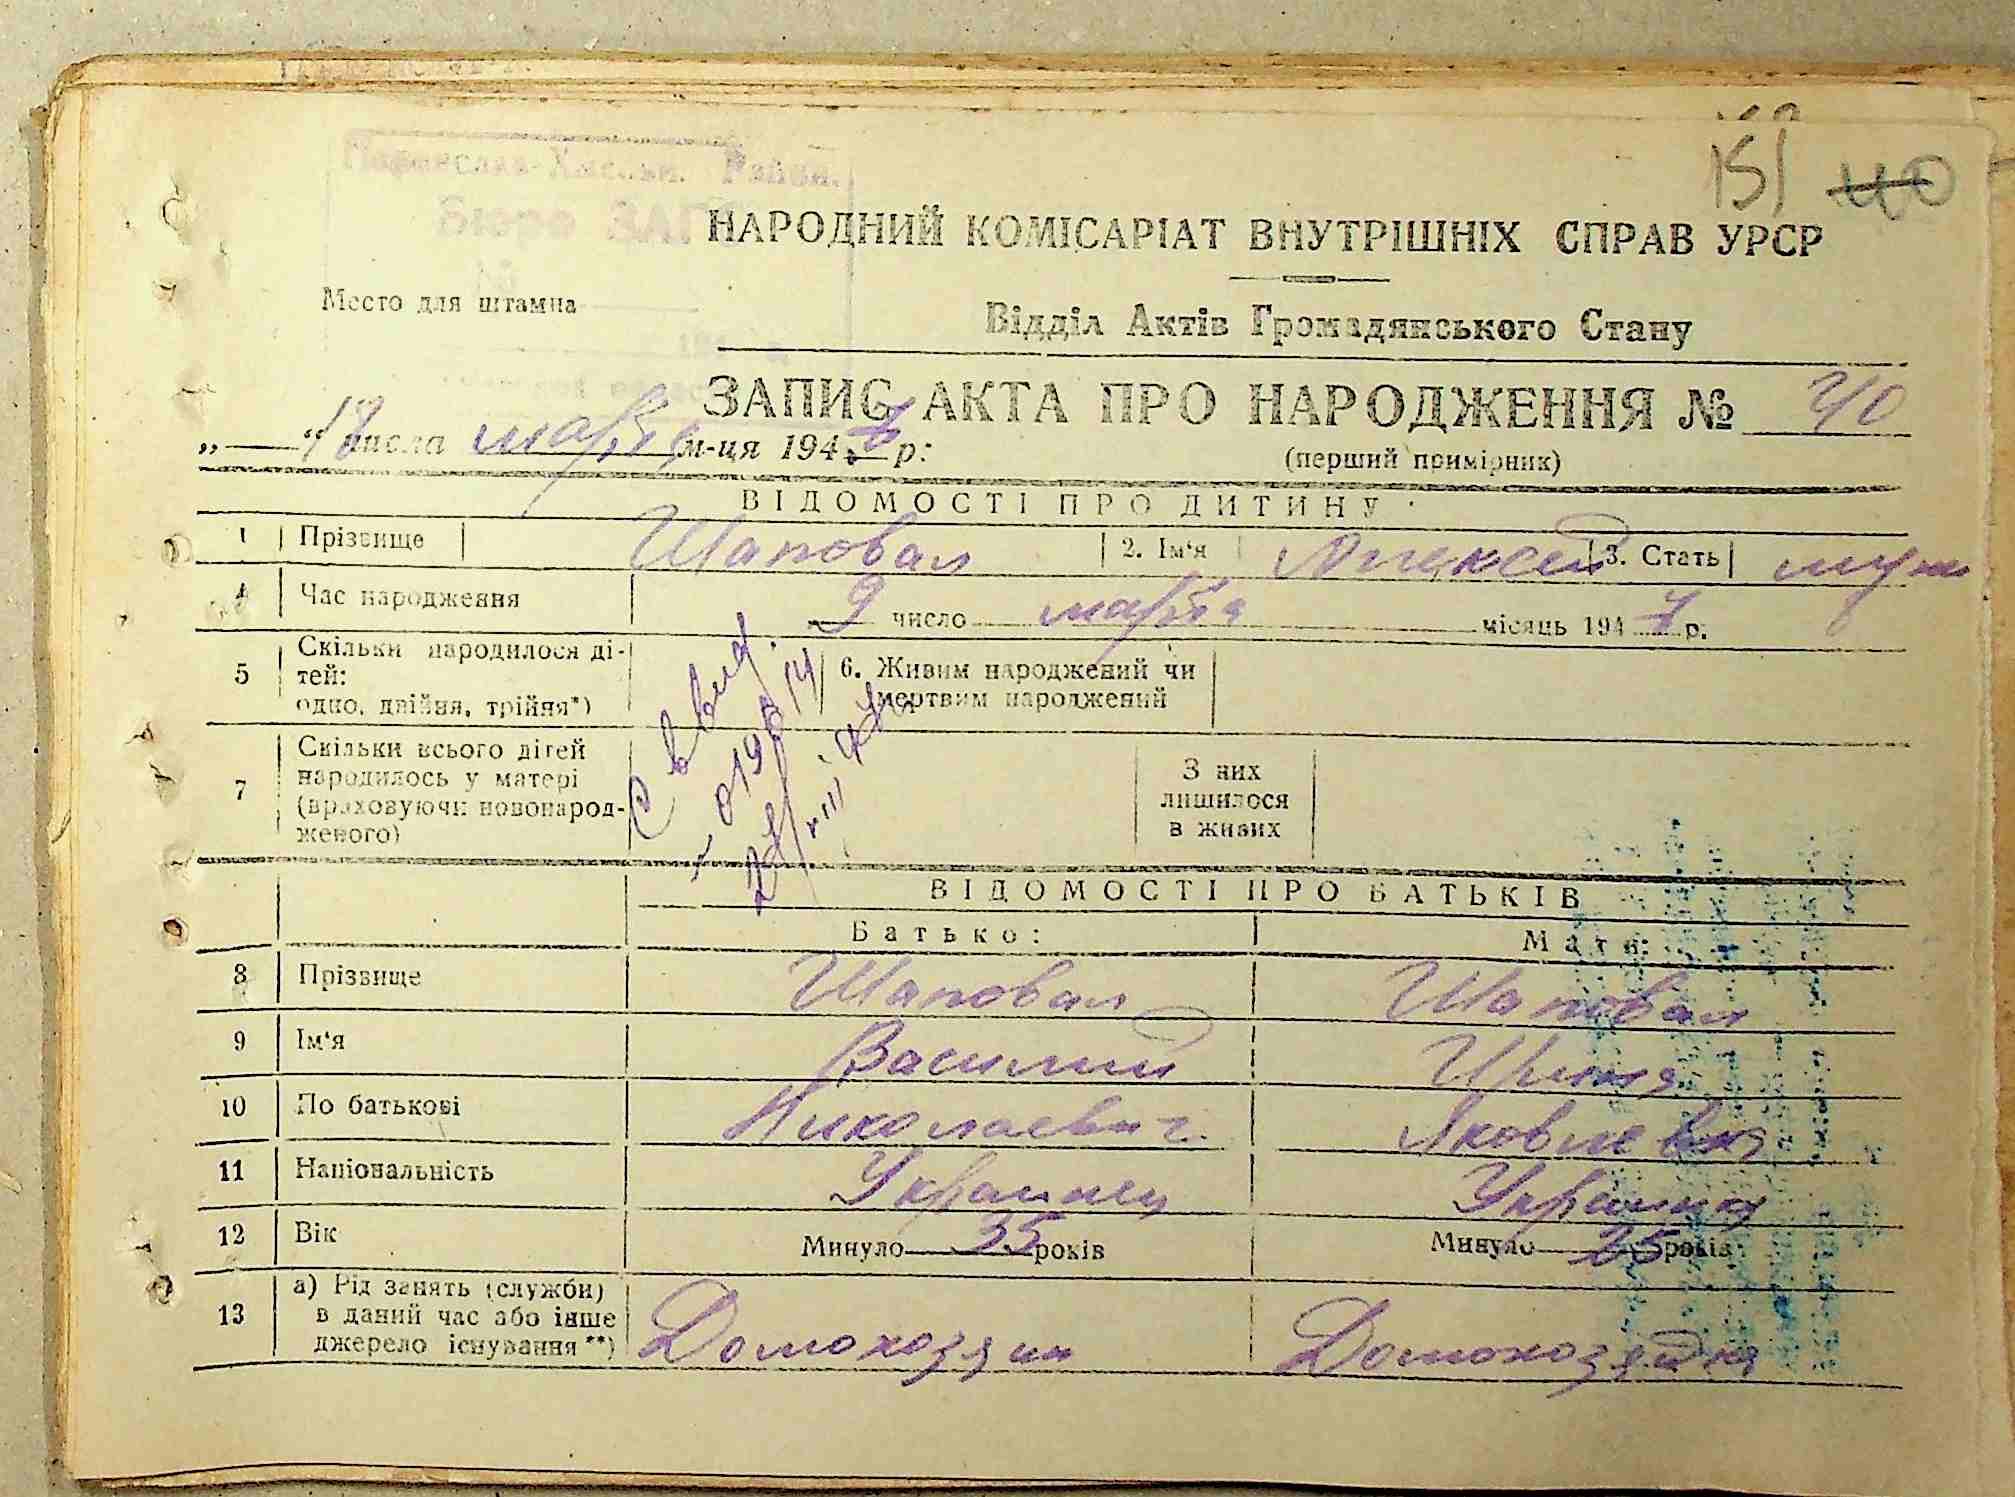 151 40
Район.
Бюро ЗАГ
НАРОДНИЙ КОМІСАРІАТ ВНУТРІШНІХ СПРАВ УРСР
Место для штампа
Відділ Актів Громадянського Стану
ЗАПИС АКТА ПРО НАРОДЖЕННЯ № 40
„ “ 18 числа марта м-ця 1947 р:
(перший примірник)
ВІДОМОСТІ ПРО ДИТИНУ
1 Прізвище Шаповал 2. Ім‘я Алексей 3. Стать муж
4 Час народження 9 число марта місяць 1947 р.
5 Скільки народилося ді-
тей:
одно, двійня, трійня*)
6. Живим народжений чи
мертвим народжений
7 Скільки всього дітей
народилось у матері
(враховуючи новонарод-
женого)
З них
лишилося
в живих
ВІДОМОСТІ ПРО БАТЬКІВ
Батько: Мати:
8 Прізвище Шаповал Шаповал
9 Ім‘я Василий Ирина
10 По батькові Николаевич Яковлевна
11 Національність Украинец Украинка
12 Вік Минуло 35 років Минуло 25 років
13 а) Рід занять (служби)
в даний час або інше
джерело існування **)
Домохозяин Домохозяйка